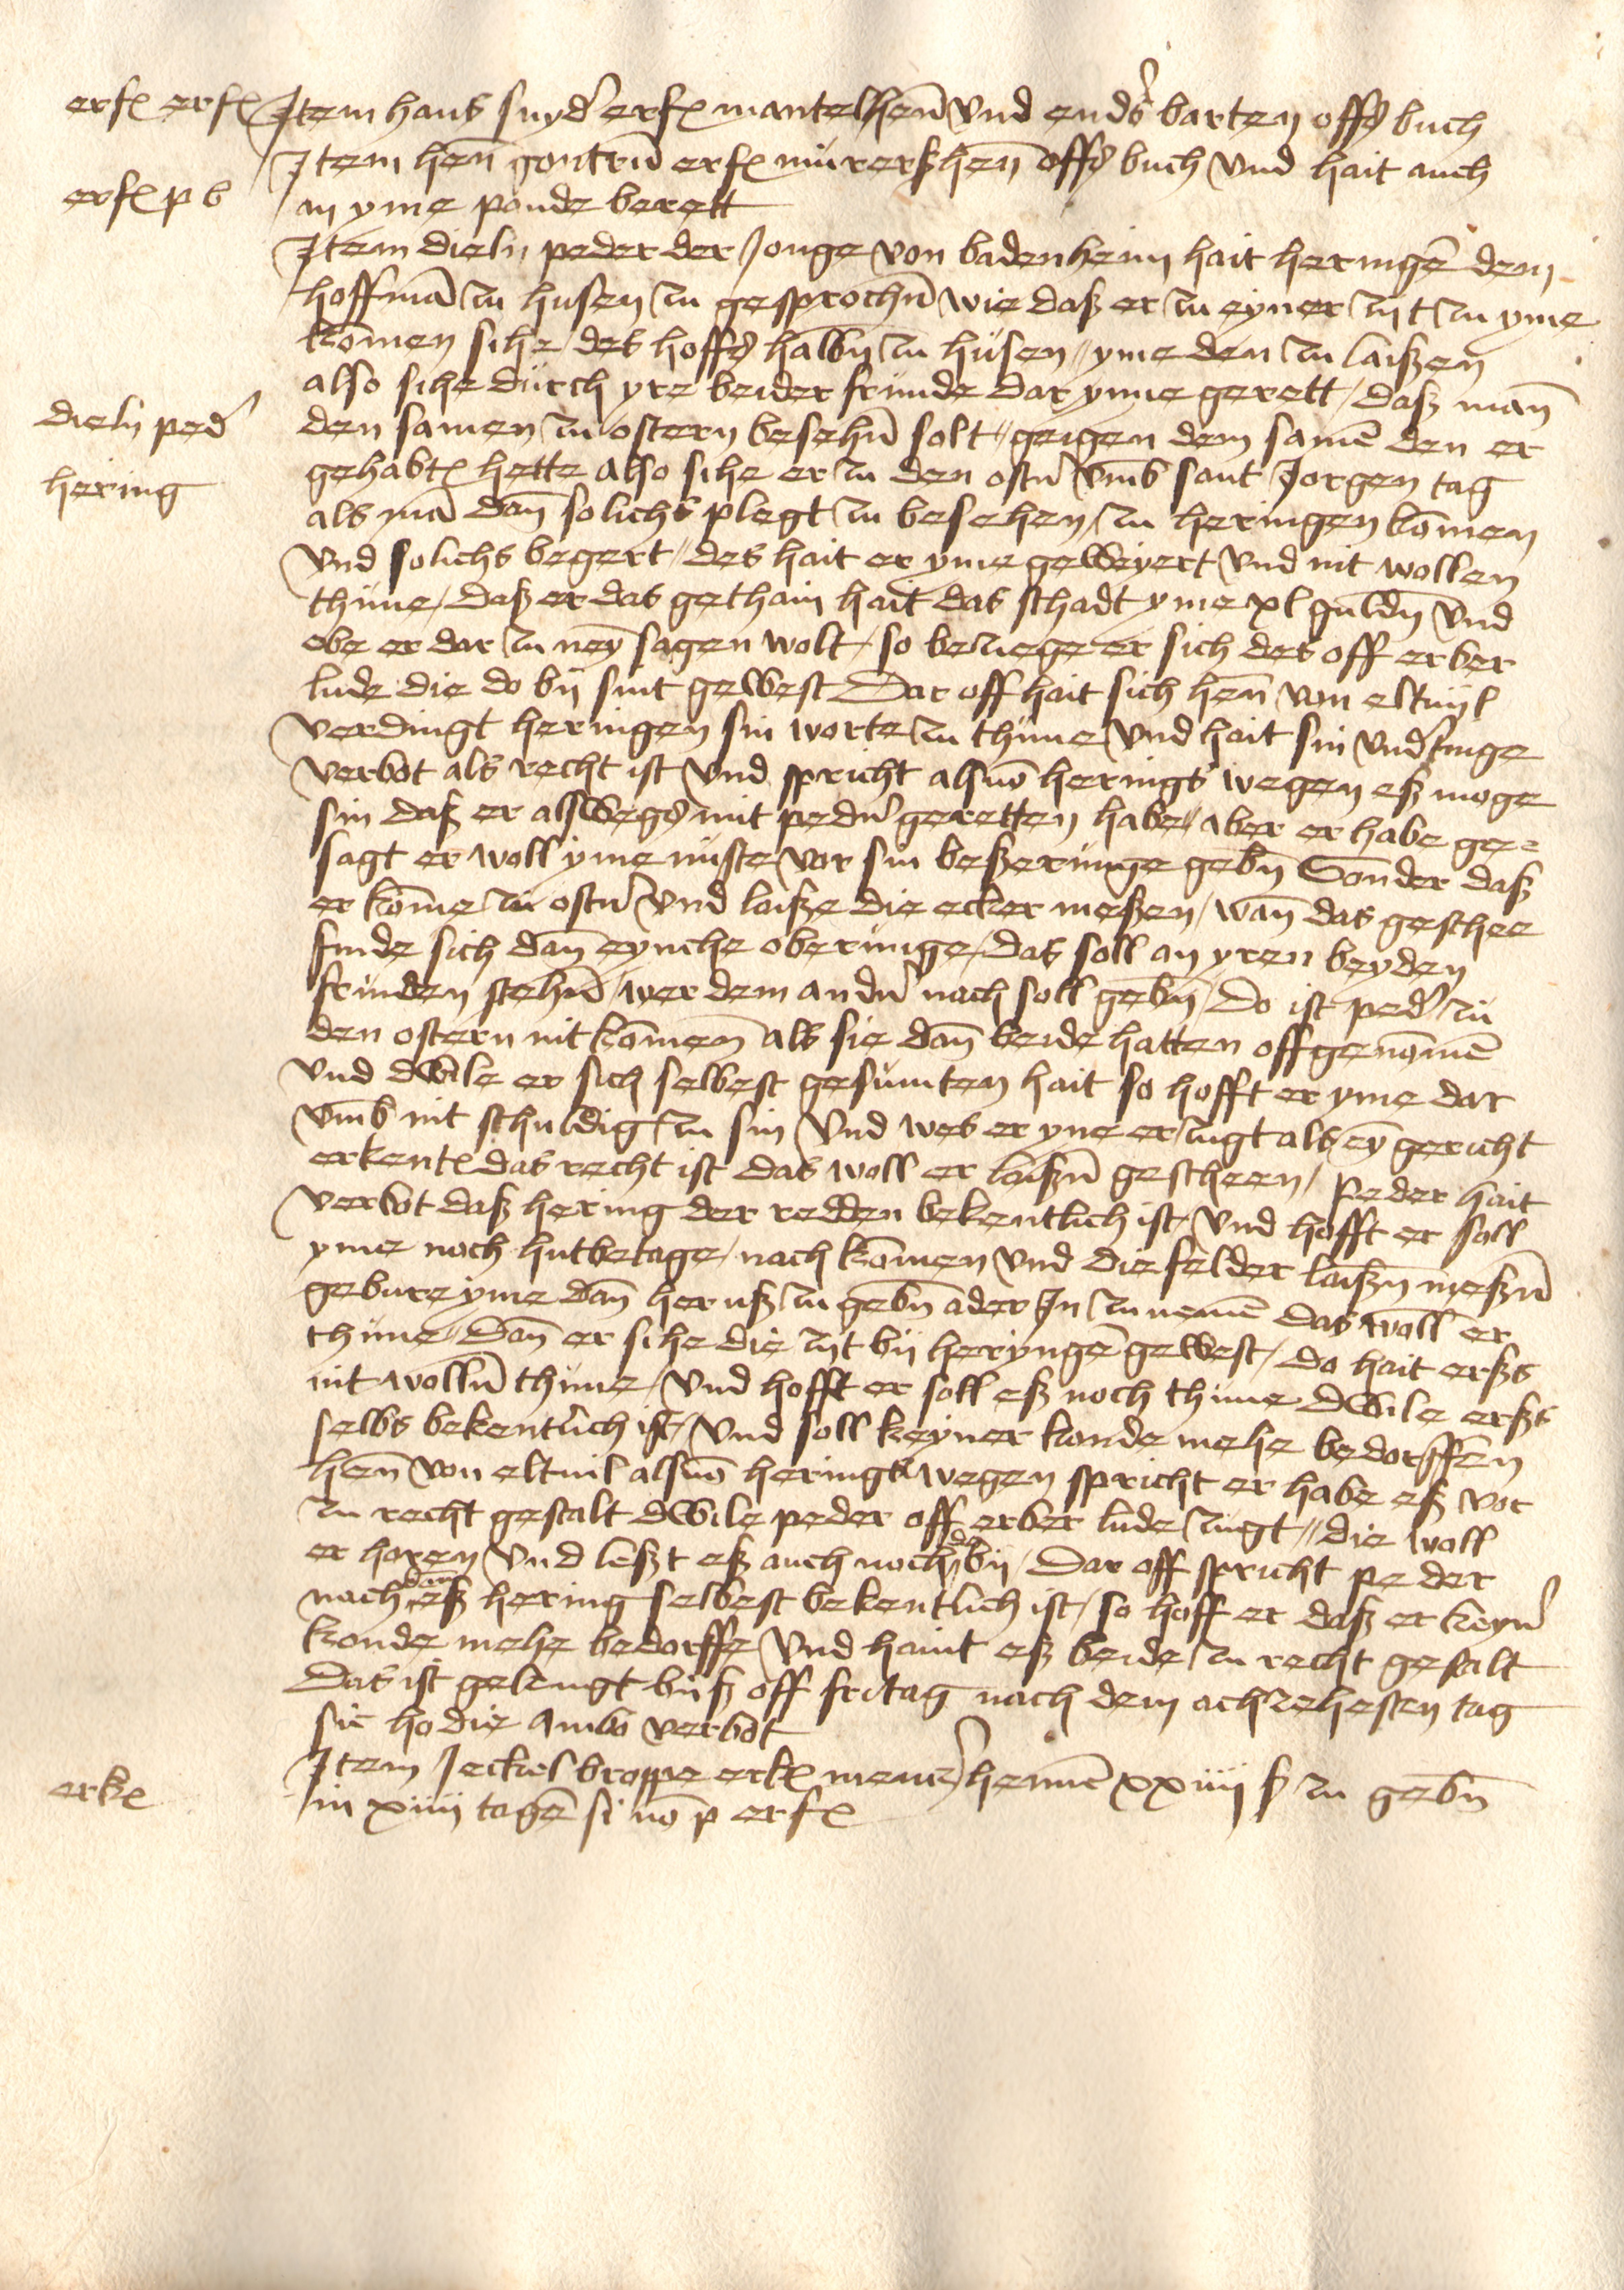 erfͯ erfͯ
Item hans snyd' erfͯ mantelhen̄ vnd endrs barten offs buch
Item hen̄ gontrū erfͯ murerßhen̄ offs buch vnd hait auch
erfͯ p b
an yme pande berett
Item dieln peder der Jonge von badenheim hait heringē dem
hoffmā zu husen zu gesprochn̄ wie daß er zu eyner zijt zu yme
kōmen sihe des hoffs halbn zu husen yme den zu laißen
also sihe durch yre beider frunde dar ynne gerett daß man̄
dieln ped'
den samen zu ostern besehn̄ solt geigen dem samē den er
hering
gehabtͯ hette also sihe er zu den ostn̄ vmb sant Jorgen tag
als mā dan̄ solichs plegt zu besehen zu heringen kōmen
vnd solichs begert des hait er yme geweyert vnd nit wollen
thune daß er das gethain hait das schadt yme xl guldn̄ vnd
obe er dar zu neȳ sagen wolt so beziege er sich des off erber
lude die do bij sint gewest Dar off hait sich hen̄ von eltuil
verdingt heringen sin worte zu thune vnd hait sin vnd'tinge
verbot als recht ist vnd spricht alsuō herings wegen eß moge
sin daß er alßwegs mit pedn̄ geretten habe aber er habe ge=
sagt er woll yme nuste vor sin beßerunge gebn̄ Sonder daß
er kōme zu ostn̄ vnd laiße die ecker meßen wan̄ das geschee
finde sich dan̄ eynche oberunge das soll an yren beyden
frunden stehn̄ wer dem andn̄ nach soll gebn̄ Do ist ped' zu
den ostern nit kōmen als sie dan̄ beide hatten offgenōmē
vnd dwile er sich selbest gesumten hait so hofft er yme dar
vmb nit schuldig zu sin vnd wes er yne erzugt als eȳ gericht
erkentͯ das recht ist das woll er laißn̄ gescheen peder hait
verbot daß hering der redden bekentlich ist vnd hofft er soll
yme noch hutbetage nach kōmen vnd die felder laißn̄ meßn̄
gebure yme dan̄ heruß zu gebn̄ ader In zu nemē das woll er
thune Dan̄ er sihe die zijt bij heryngē gewest do hait erßs
nit wolln̄ thune vnd hofft er soll eß noch thune dwile erßs
selbs bekentlich ist vnd soll keyner konde mehe bedorffen
hen̄ von eltuil alsuō herings wegen spricht er habe eß vor
zu recht gestalt dwile peder off erber lude zugt die woll
er horen vnd leßt eß auch noch do bij Dar off spricht peder
nach dem eß hering selbest bekentlich ist so hoff er daß er keyn̄
konde mehe bedorffe vnd haint eß beide zu recht gesalt
Das ist gelengt biß off fritag nach dem achzehesten tag
sic hodie Ambo verbot
erkͯ
Item Jeckel broppe erkͯ mencz hennē xxiiii ß zu gebn̄
in xiiii tagē si nō p erfͯ